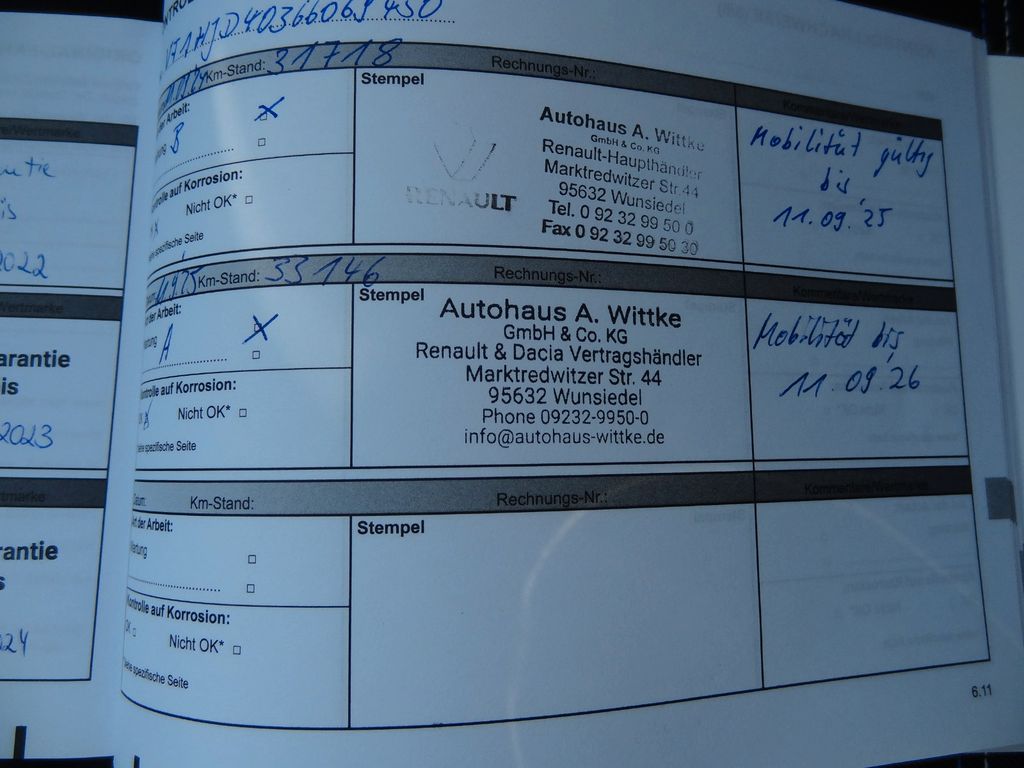 Km-Stand: 31718
Rechnungs-Nr.:
Stempel
B
Nicht OK*
spezifische Seite
RENAULT
Autohaus A. Wittke
GmbH & Co. KG
Renault-Haupthändler
Marktredwitzer Str. 44
95632 Wunsiedel
Tel. 0 92 32 99 50 0
Fax 0 92 32 99 50 30
Mobilität gültig
bis
11.09.'25
Km-Stand: 33146
Rechnungs-Nr.:
Kommentare/Wertmarke
der Arbeit:
A
auf Korrosion:
Nicht OK*
spezifische Seite
Stempel
Autohaus A. Wittke
GmbH & Co. KG
Renault & Dacia Vertragshändler
Marktredwitzer Str. 44
95632 Wunsiedel
Phone 09232-9950-0
info@autohaus-wittke.de
Mobilität bis
11.09.'26
Km-Stand:
Rechnungs-Nr.:
Kommentare/Wertmarke
der Arbeit:
auf Korrosion:
Nicht OK*
spezifische Seite
Stempel
6.11
2022
arantie
is
2023
rantie
s